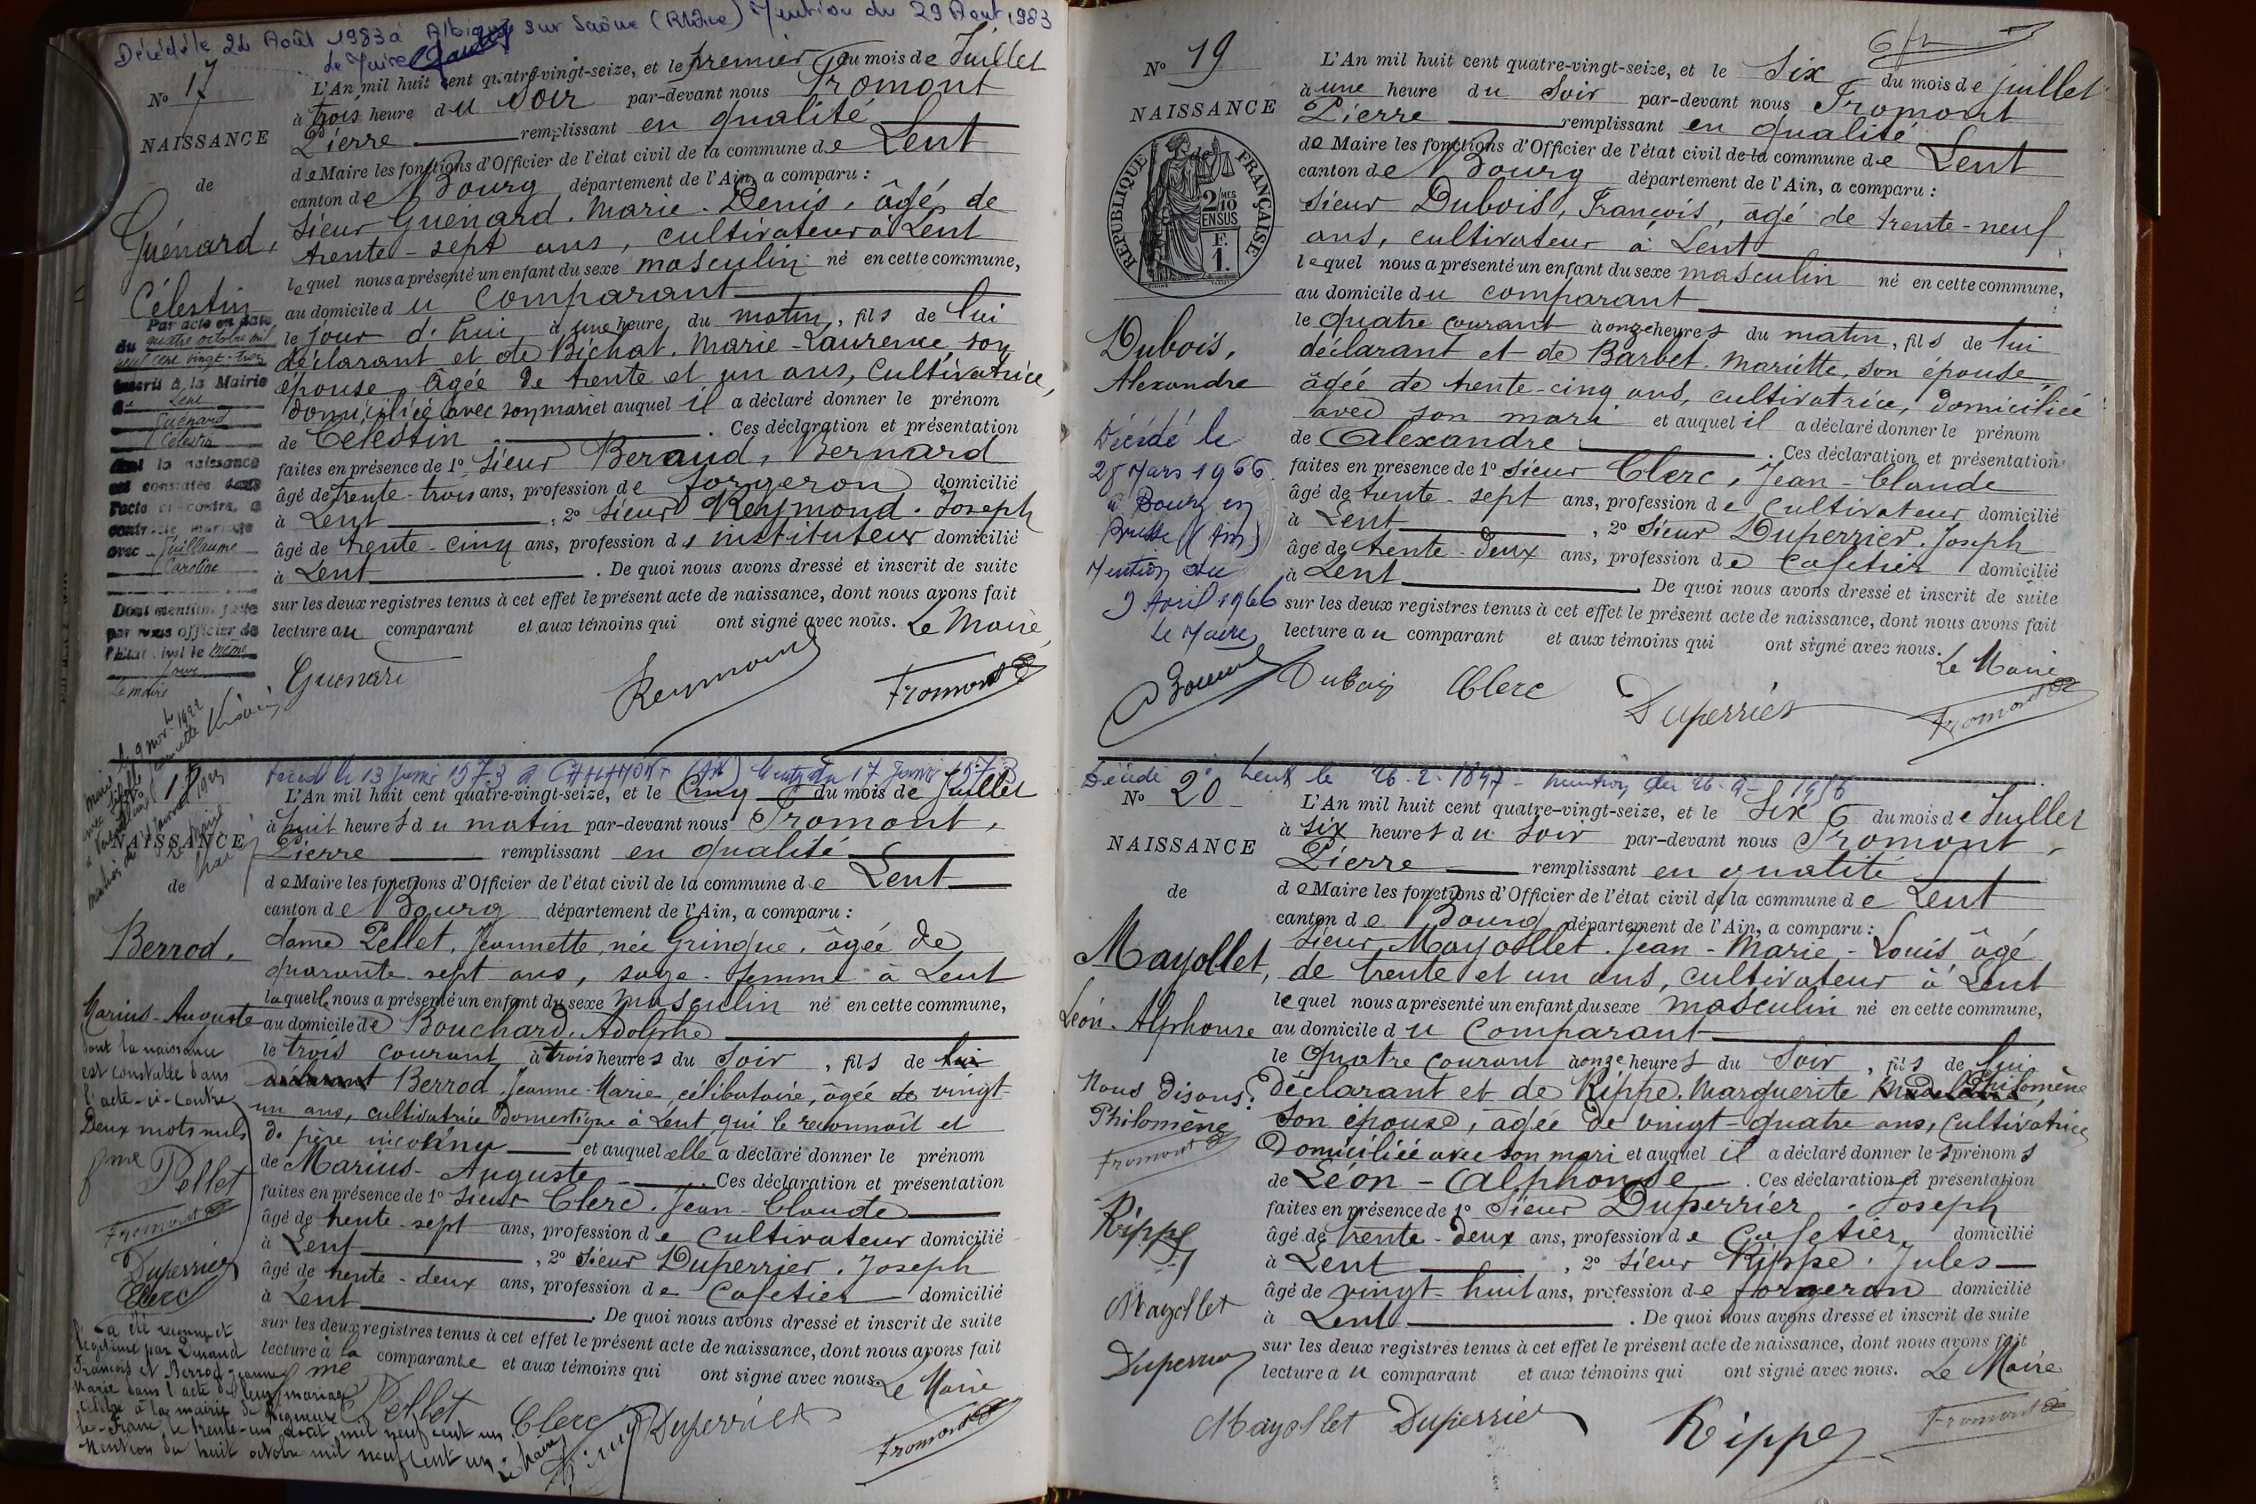 Décédé le 24 Août 1983 à Albigny sur Saône (Rhône) Mention du 29 Aout 1983
Le Maire
N° 17
NAISSANCE
de
Guénard,
Célestin
Par acte en date
du quatre octobre mil
neuf cent vingt-trois
inscrit à la Mairie
de Lent
Guénard
Célestin
dont la naissance
est constatée dans
l'acte ci-contre, a
contracté mariage
avec Guillaume
Caroline
Dont mention faite
par nous officier de
l'état civil le même
jour
Le maire
L'An mil huit cent quatre-vingt-seize, et le premier du mois de Juillet
à trois heure du Soir par-devant nous Fromont
Pierre remplissant en qualité
de Maire les fonctions d'Officier de l'état civil de la commune de Lent
canton de Bourg département de l'Ain, a comparu :
Sieur Guénard. Marie. Denis, âgé de
trente-sept ans, cultivateur à Lent
lequel nous a présenté un enfant du sexe masculin né en cette commune,
au domicile du comparant
le jour d'hui à une heure du matin, fils de lui
déclarant et de Bichat. Marie-Laurence, son
épouse, âgée de trente et un ans, Cultivatrice,
domiciliée avec son mari et auquel il a déclaré donner le prénom
de Célestin. Ces déclaration et présentation
faites en présence de 1° Sieur Beraud, Bernard
âgé de trente-trois ans, profession de forgeron domicilié
à Lent, 2° Sieur Reymond. Joseph
âgé de trente-cinq ans, profession d'instituteur domicilié
à Lent. De quoi nous avons dressé et inscrit de suite
sur les deux registres tenus à cet effet le présent acte de naissance, dont nous avons fait
lecture au comparant et aux témoins qui ont signé avec nous. Le Maire,
Guenard
Reymond
Fromont
N° 18
NAISSANCE
de
Berrod.
Marius-Auguste
dont la naissance
est constatée dans
l'acte-ci-contre
Deux mots nuls
fme Pellet
Fromont
Duperrier
Clerc
a été reconnu et
légitimé par Durand
François et Berrod Jeanne
Marie dans l'acte de leur mariage
célébré à la mairie de
le trente-un Août mil neuf cent un.
Mention du huit octobre mil neuf cent un.
décédé le 13 Janvier 1973 à CHALAMONT (Ain) Mention du 17 Janvier 1973
L'An mil huit cent quatre-vingt-seize, et le Cinq du mois de Juillet
à huit heures du matin par-devant nous Fromont,
Pierre remplissant en qualité
de Maire les fonctions d'Officier de l'état civil de la commune de Lent
canton de Bourg département de l'Ain, a comparu :
dame Pellet, Jeannette, née Gringue, âgée de
quarante-sept ans, sage-femme à Lent
laquelle nous a présenté un enfant du sexe masculin né en cette commune,
au domicile de Bouchard, Adolphe
le trois courant à trois heures du Soir, fils de lui
déclarant Berrod, Jeanne-Marie, célibataire, âgée de vingt-
un ans, cultivatrice domestique à Lent, qui le reconnaît et
de père inconnu et auquel elle a déclaré donner le prénom
de Marius-Auguste. Ces déclaration et présentation
faites en présence de 1° Sieur Clerc. Jean-Claude
âgé de trente-sept ans, profession de Cultivateur domicilié
à Lent, 2° Sieur Duperrier, Joseph
âgé de trente-deux ans, profession de Cafetier domicilié
à Lent. De quoi nous avons dressé et inscrit de suite
sur les deux registres tenus à cet effet le présent acte de naissance, dont nous avons fait
lecture à la comparante et aux témoins qui ont signé avec nous. Le Maire
fme Pellet
Clerc
Duperrier
Fromont
N° 19
NAISSANCE
de
RÉPUBLIQUE FRANÇAISE
2/10 MES
EN SUS
F.
1.
Dubois,
Alexandre
Décédé le
28 Mars 1966
à Bourg en
Bresse (Ain)
Mention du
9 Avril 1966
Le Maire,
L'An mil huit cent quatre-vingt-seize, et le Six du mois de juillet
à une heure du Soir par-devant nous Fromont
Pierre remplissant en qualité
de Maire les fonctions d'Officier de l'état civil de la commune de Lent
canton de Bourg département de l'Ain, a comparu :
Sieur Dubois, François, âgé de trente-neuf
ans, cultivateur à Lent
lequel nous a présenté un enfant du sexe masculin né en cette commune,
au domicile du comparant
le quatre courant à onze heures du matin, fils de lui
déclarant et de Barbet. Mariette, son épouse,
âgée de trente-cinq ans, cultivatrice, domiciliée
avec son mari et auquel il a déclaré donner le prénom
de Alexandre. Ces déclaration et présentation
faites en présence de 1° Sieur Clerc, Jean-Claude
âgé de trente-sept ans, profession de Cultivateur domicilié
à Lent, 2° Sieur Duperrier. Joseph
âgé de trente-deux ans, profession de Cafetier domicilié
à Lent. De quoi nous avons dressé et inscrit de suite
sur les deux registres tenus à cet effet le présent acte de naissance, dont nous avons fait
lecture au comparant et aux témoins qui ont signé avec nous.
Le Maire
Dubois Clerc
Duperrier
Fromont
Décédé à Lent le 26-2-1897
N° 20
NAISSANCE
de
Mayollet,
Léon-Alphonse
Nous disons:
Philomène
Fromont
Rippe
Mayollet
Duperrier
L'An mil huit cent quatre-vingt-seize, et le Six du mois de Juillet
à six heures du Soir par-devant nous Fromont,
Pierre remplissant en qualité
de Maire les fonctions d'Officier de l'état civil de la commune de Lent
canton de Bourg département de l'Ain, a comparu :
Sieur Mayollet. Jean-Marie-Louis âgé
de trente et un ans, cultivateur à Lent
lequel nous a présenté un enfant du sexe masculin né en cette commune,
au domicile du Comparant
le Quatre courant à onze heures du Soir, fils de lui
déclarant et de Rippe. Marguerite Philomène
son épouse, âgée de vingt-quatre ans, Cultivatrice
Domiciliée avec son mari et auquel il a déclaré donner les prénoms
de Léon-Alphonse. Ces déclaration et présentation
faites en présence de 1° Sieur Duperrier. Joseph
âgé de trente-deux ans, profession de Cafetier domicilié
à Lent, 2° Sieur Rippe. Jules
âgé de vingt-huit ans, profession de forgeron domicilié
à Lent. De quoi nous avons dressé et inscrit de suite
sur les deux registres tenus à cet effet le présent acte de naissance, dont nous avons fait
lecture au comparant et aux témoins qui ont signé avec nous. Le Maire
Mayollet Duperrier
Rippe
Fromont